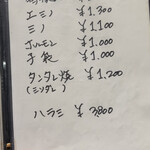 エミノ ¥1,300
ミノ ¥1,100
ホルモン ¥1,000
子袋 ¥1,000
タンタレ焼 ¥1,200
(ミソダレ)
ハラミ ¥3800